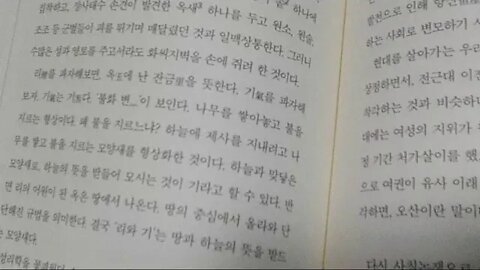 검박하고, 장사태수 손견이 발견한 옥새 하나를 두고 원소, 원술,
조조 등 군벌들이 피를 튀기며 매달렸던 것과 일맥상통한다. 그러니
수많은 성과 영토를 주고서라도 화씨지벽을 손에 쥐려 한 것이다.
리理를 파자해보면, 옥玉에 난 잔금里을 뜻한다. 기氣를 파자해
보자. 기는 기다. '불화 변灬'이 보인다. 나무를 쌓아놓고 불을
지르는 형상이다. 왜 불을 지르느냐? 하늘에 제사를 지내려고 나
무를 쌓고 불을 지르는 모양새를 형상화한 것이다. 하늘과 맞닿은
모양새로, 하늘의 뜻을 받들어 모시는 것이 기라고 할 수 있다. 반
면 리의 어원이 된 옥은 땅에서 나온다. 땅의 중심에서 올리와 단
단해진 규범을 의미한다. 결국 '리와 기'는 땅과 하늘의 뜻을 받드
는 모양새다.
성리학을
으로 인해
하는 사회로 변모하기 시
현대를 살아가는 우리
붕정하면서, 전근대 이전
착각하는 것과 비슷하
대에는 여성의 지위가
정 기간 처가살이를 했
으로 여권이 유사 이래
각하면, 오산이란 말이
다시 사칠논쟁으로